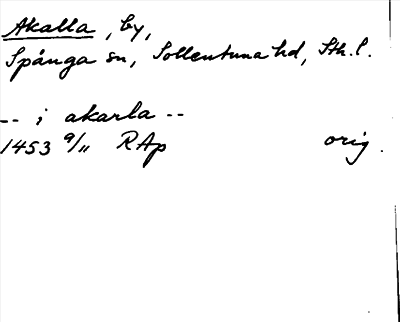 Akalla, by,
Spånga sn, Sollentuna hd, Sth. l.
-- i akarla --
1453 9/11 RAp orig.